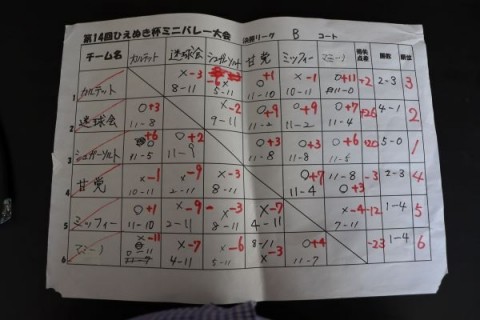 第14回ひえぬき杯ミニバレー大会 決勝リーグ B コート
チーム名 カルテット 迷球会 シュガーソルト 甘党 ミッフィー マミーズ 得失点差 勝敗 順位
1 カルテット ×-3 8-11 5-11 ○+1 11-10 ×-1 10-11 ○+11 11-0 +2 2-3 3
2 迷球会 ○+3 11-8 ×-2 9-11 ○+9 11-2 ○+9 11-2 ○+7 11-4 +26 4-1 2
3 シュガーソルト ○+6 11-5 ○+2 11-9 ○+3 11-8 ○+3 11-8 ○+6 11-5 +20 5-0 1
4 甘党 ×-1 10-11 ×-9 2-11 ×-3 8-11 ○+7 11-4 11-8 ○+3 -3 2-3 4
5 ミッフィー ○+1 11-10 ×-9 2-11 ×-3 8-11 ×-7 4-11 ×-4 7-11 -12 1-4 5
6 ×-11 ×-7 4-11 ×-6 5-11 8-11 ×-3 ○+4 11-7 -23 1-4 6